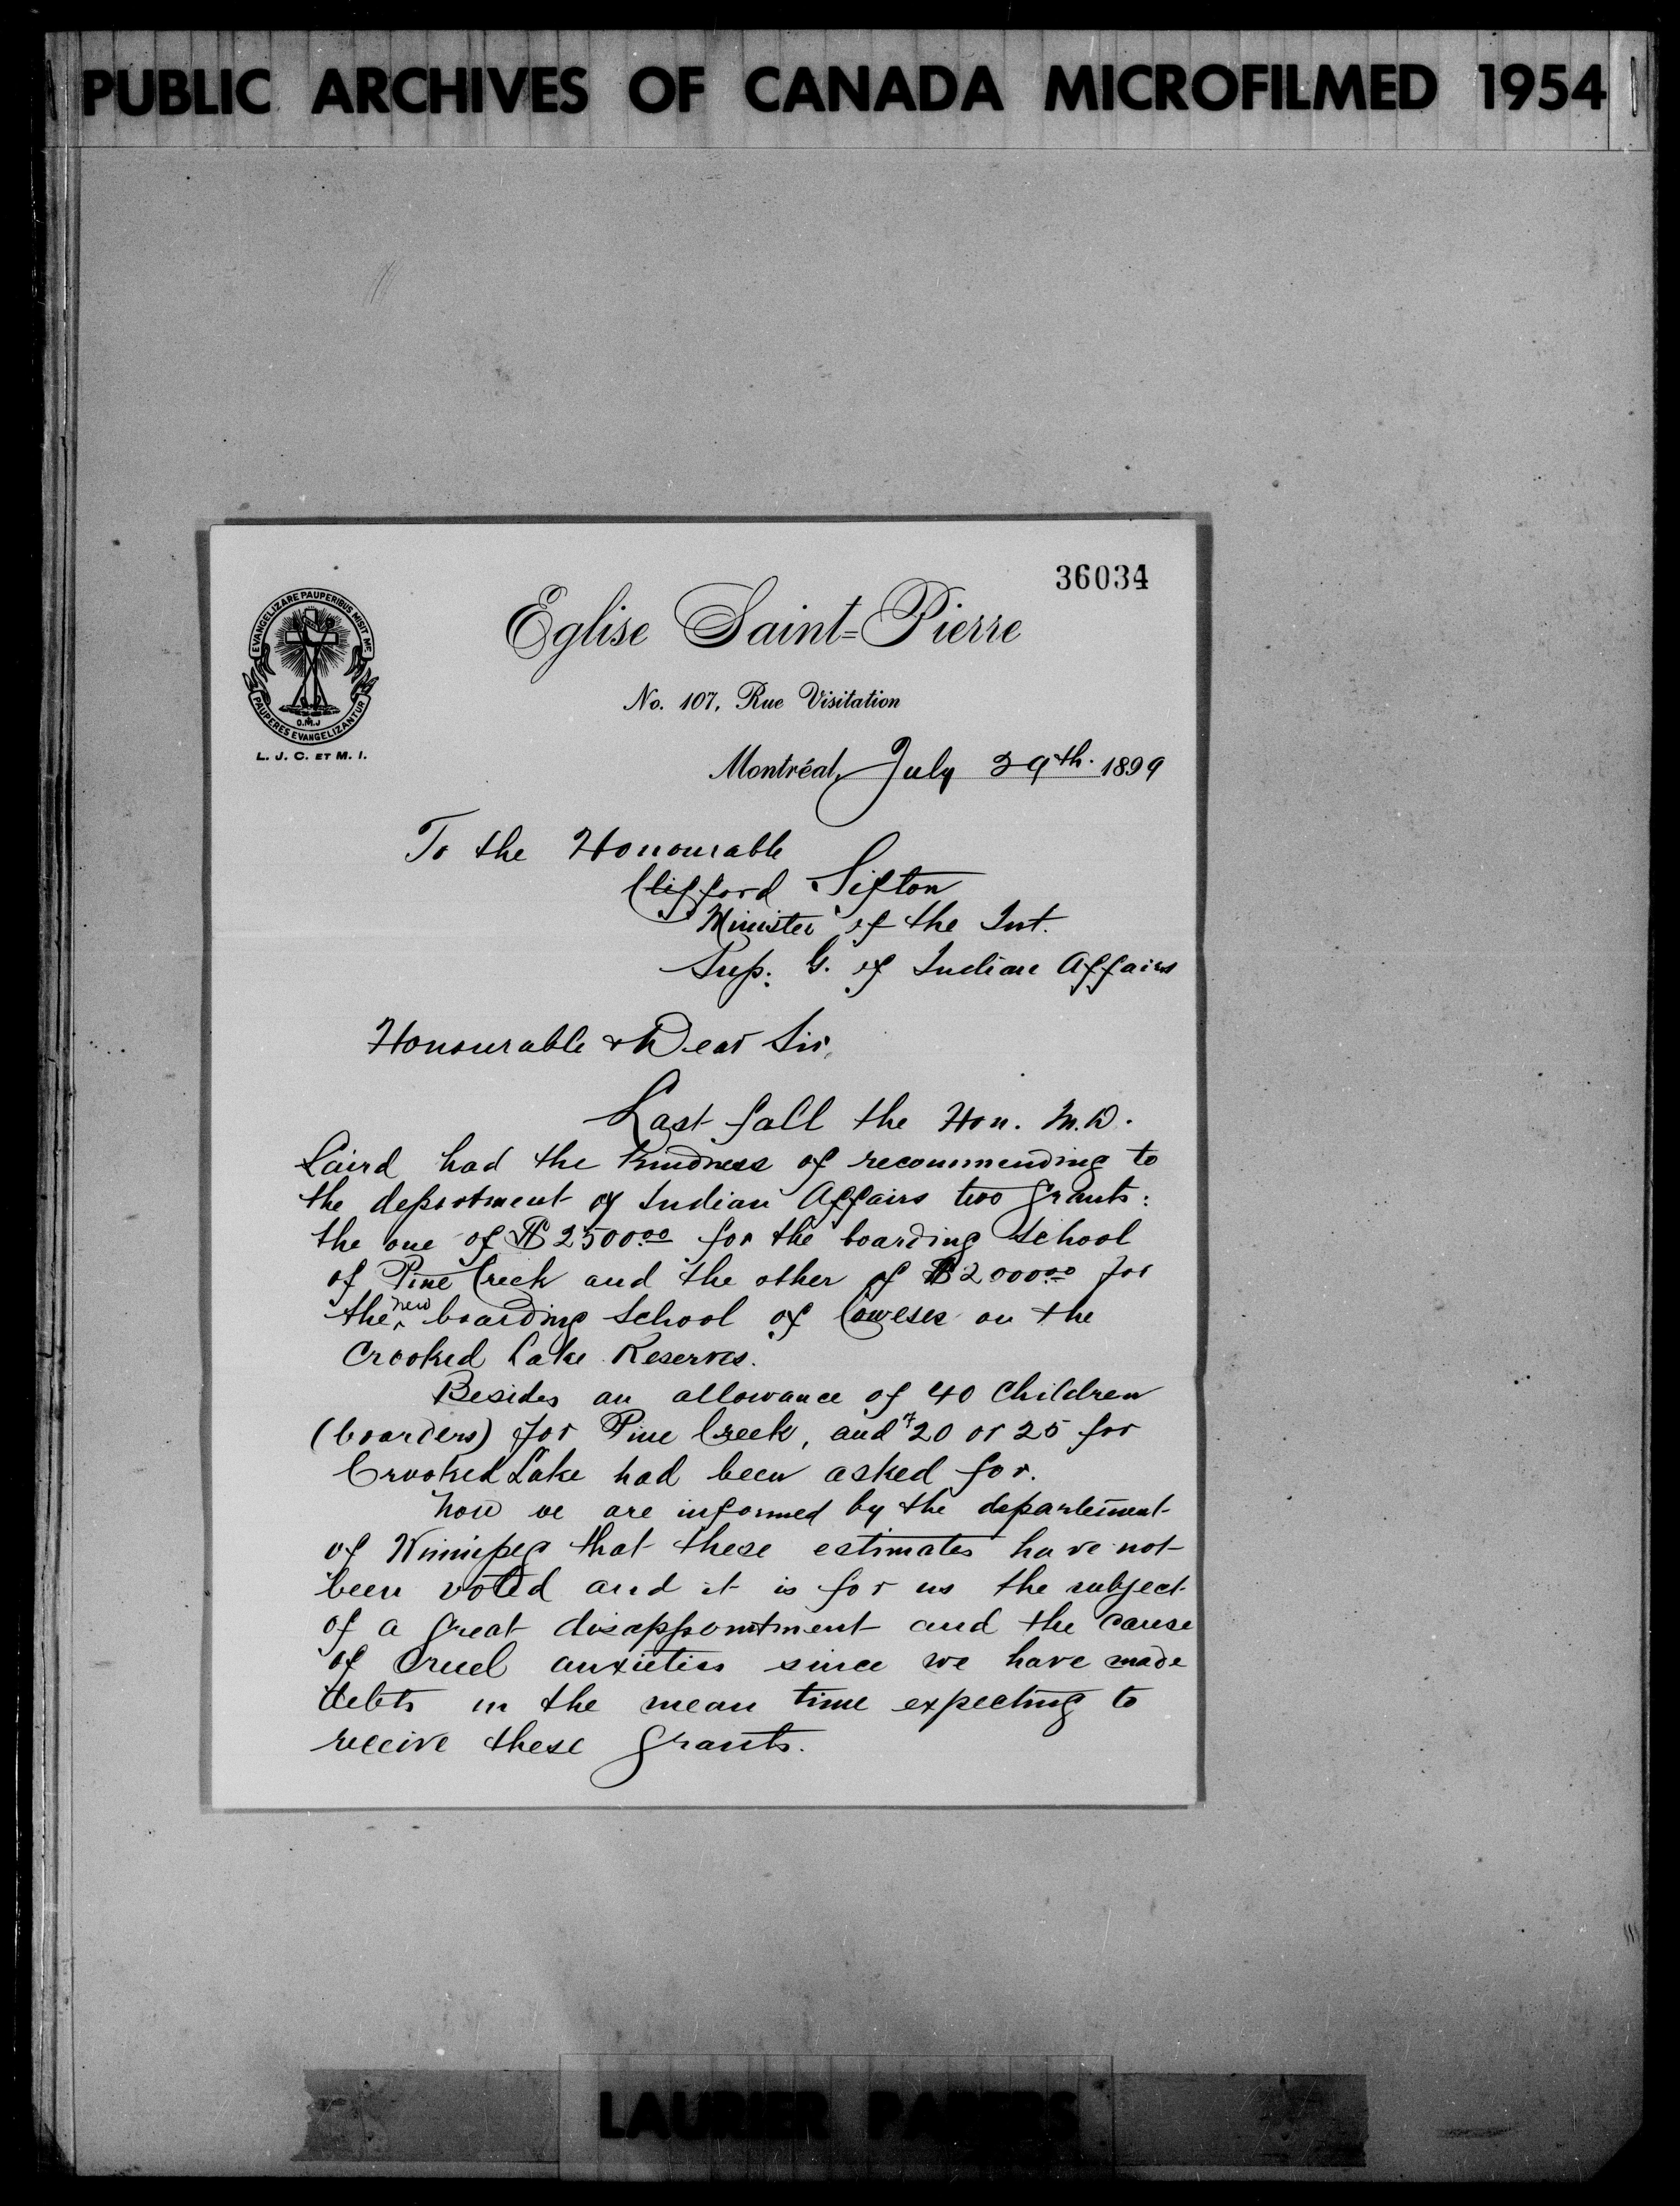 PUBLIC ARCHIVES OF CANADA MICROFILMED 1954
36034
EVANGELIZARE PAUPERIBUS MISIT ME
PAUPERES EVANGELIZANTUR
O.M.J
L. J. C. ET M. I.
Eglise Saint=Pierre
No. 107, Rue Visitation
Montréal, July 29th. 1899
To the Honourable
Clifford Sifton
Minister of the Int.
Sup. G. of Indian Affairs
Honourable & Dear Sir,
Last fall the Hon. M.D.
Laird had the kindness of recommending to
the department of Indian Affairs two grants:
the one of $2500.00 for the boarding school
of Pine Creek and the other of $2000.00 for
the new boarding school of Coweses on the
Crooked Lake Reserves.
Besides an allowance of 40 children
(boarders) for Pine Creek, and 20 or 25 for
Crooked Lake had been asked for.
Now we are informed by the departement
of Winnipeg that these estimates have not
been voted and it is for us the subject
of a great disappointment and the cause
of cruel anxieties since we have made
debts in the mean time expecting to
receive these grants.
LAURIER PAPERS